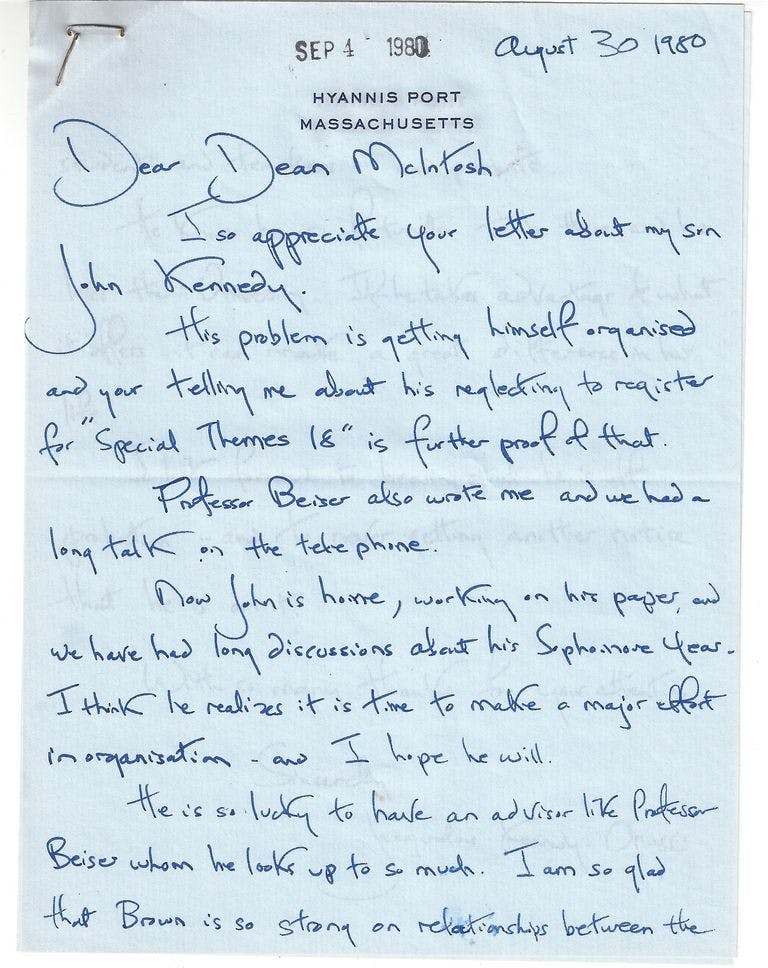 SEP 4 1980
August 30 1980
HYANNIS PORT
MASSACHUSETTS
Dear Dean McIntosh
I so appreciate your letter about my son
John Kennedy.
His problem is getting himself organised
and your telling me about his neglecting to register
for "Special Themes 18" is further proof of that.
Professor Beiser also wrote me and we had a
long talk on the telephone.
Now John is home, working on his paper, and
we have had long discussions about his Sophomore Year.
I think he realizes it is time to make a major effort
in organisation - and I hope he will.
He is so lucky to have an advisor like Professor
Beiser whom he looks up to so much. I am so glad
that Brown is so strong on relationships between the